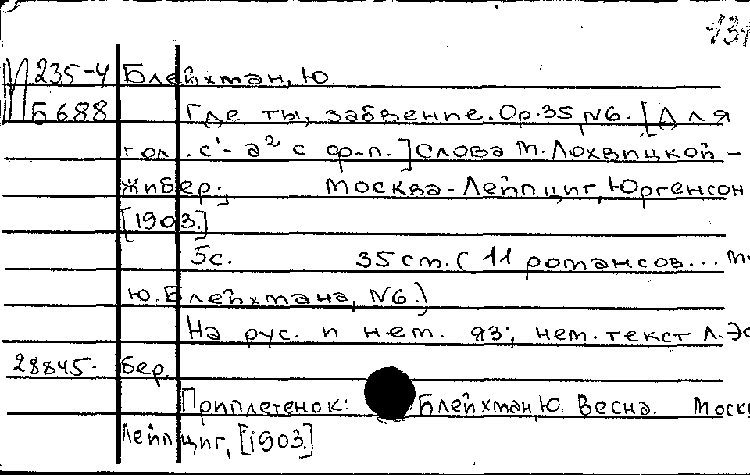 131
М 235-4 Блейхман, Ю
Б 688 Где ты, забвение. Op.35, N6. [Для
гол. с¹- а² с ф-п.] Слова М. Лохвицкой -
Жибер. Москва - Лейпциг, Юргенсон
[1903.]
5с. 35 cm. ( 11 романсов... m.
Ю. Блейхмана, N6.)
На рус. и нем. яз.; нем. текст Л. Эс
28845. бер.
Приплетенок: Блейхман, Ю. Весна. Москв
Лейпциг, [1903]